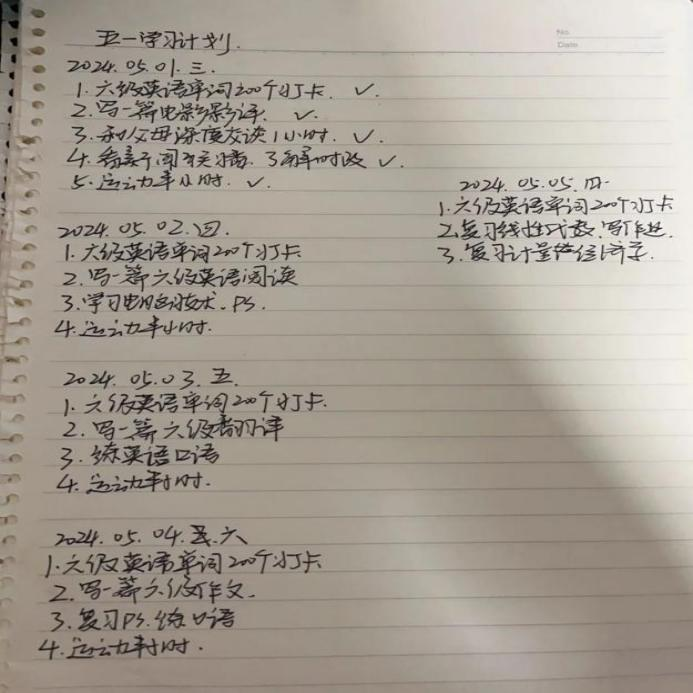 No.
Date
五一学习计划.
2024.05.01.三.
1. 六级英语单词200个打卡. ✓.
2. 写一篇电影影评. ✓.
3. 和父母深度交谈1小时. ✓.
4. 看新闻联播.了解时政 ✓.
5. 运动半小时. ✓.
2024.05.02.四.
1. 六级英语单词200个打卡.
2. 写一篇六级英语阅读
3. 学习电脑技术.PS.
4. 运动半小时.
2024.05.03.五.
1. 六级英语单词200个打卡.
2. 写一篇六级翻译
3. 练英语口语
4. 运动半小时.
2024.05.04.六
1. 六级英语单词200个打卡.
2. 写一篇六级作文.
3. 复习PS.练口语
4. 运动半小时.
2024.05.05.
1. 六级英语单词200个打卡
2. 复习线性代数.写作业.
3. 复习计量经济学.